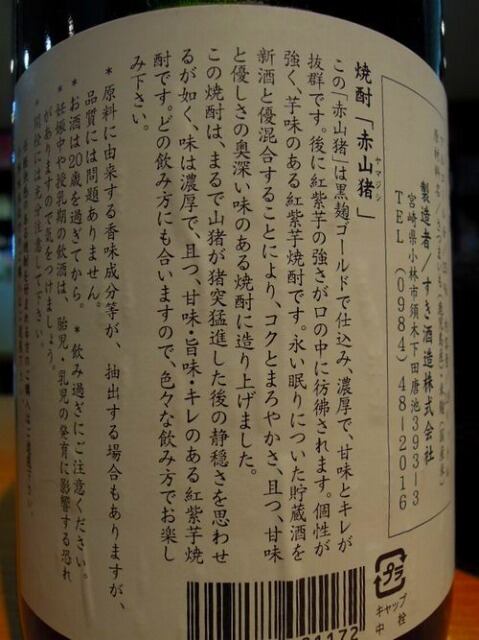 製造者/すき酒造株式会社
宮崎県小林市須木下田唐池393-3
TEL (0984) 48-2016
焼酎「赤山猪」
ヤマジシ
この「赤山猪」は黒麹ゴールドで仕込み、濃厚で、甘味とキレが
抜群です。後に紅紫芋の強さが口の中に彷彿されます。個性が
強く、芋味のある紅紫芋焼酎です。永い眠りについた貯蔵酒を
新酒と優混合することにより、コクとまろやかさ、且つ、甘味
と優しさの奥深い味のある焼酎に造り上げました。
この焼酎は、まるで山猪が猪突猛進した後の静穏さを思わせ
るが如く、味は濃厚で、且つ、甘味・旨味・キレのある紅紫芋焼
酎です。どの飲み方にも合いますので、色々な飲み方でお楽し
み下さい。
*原料に由来する香味成分等が、抽出する場合もありますが、
品質には問題ありません。
*お酒は20歳を過ぎてから。 *飲み過ぎにご注意ください。
*妊娠中や授乳期の飲酒は、胎児・乳児の発育に影響する恐れ
がありますので気をつけましょう。
*開栓には充分注意して下さい。
プラ
キャップ
中栓